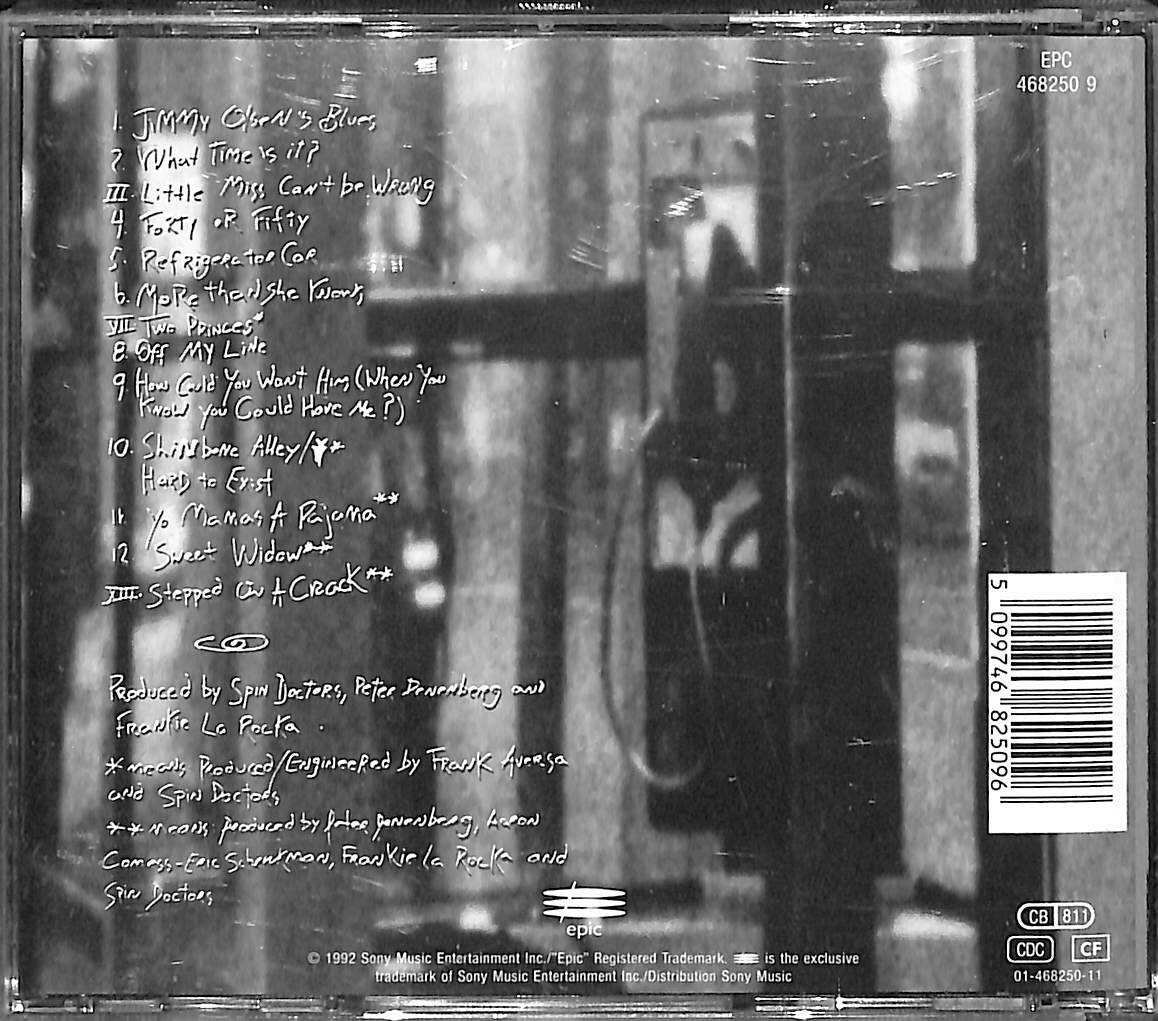 EPC
468250 9
1. Jimmy Olsen's Blues
2. What Time is it?
III. Little Miss Can't be Wrong
4. Forty or Fifty
5. Refrigerator Car
6. More than She Knows
VII. Two Princes*
8. Off My Line
9. How Could You Want Him (When You
Know you Could Have Me?)
10. Shinbone Alley/**
Hard to Exist
11. Yo Mamas A Pajama**
12. Sweet Widow**
XIII. Stepped On A Crack**
Produced by Spin Doctors, Peter Denenberg and
Frankie La Rocka.
* means Produced/Engineered by Frank Aversa
and Spin Doctors
** means produced by Peter Denenberg, Aaron
Comess-Eric Schenkman, Frankie La Rocka and
Spin Doctors
5 099746 825096
epic
CB 811
CDC CF
01-468250-11
© 1992 Sony Music Entertainment Inc./"Epic" Registered Trademark. is the exclusive
trademark of Sony Music Entertainment Inc./Distribution Sony Music